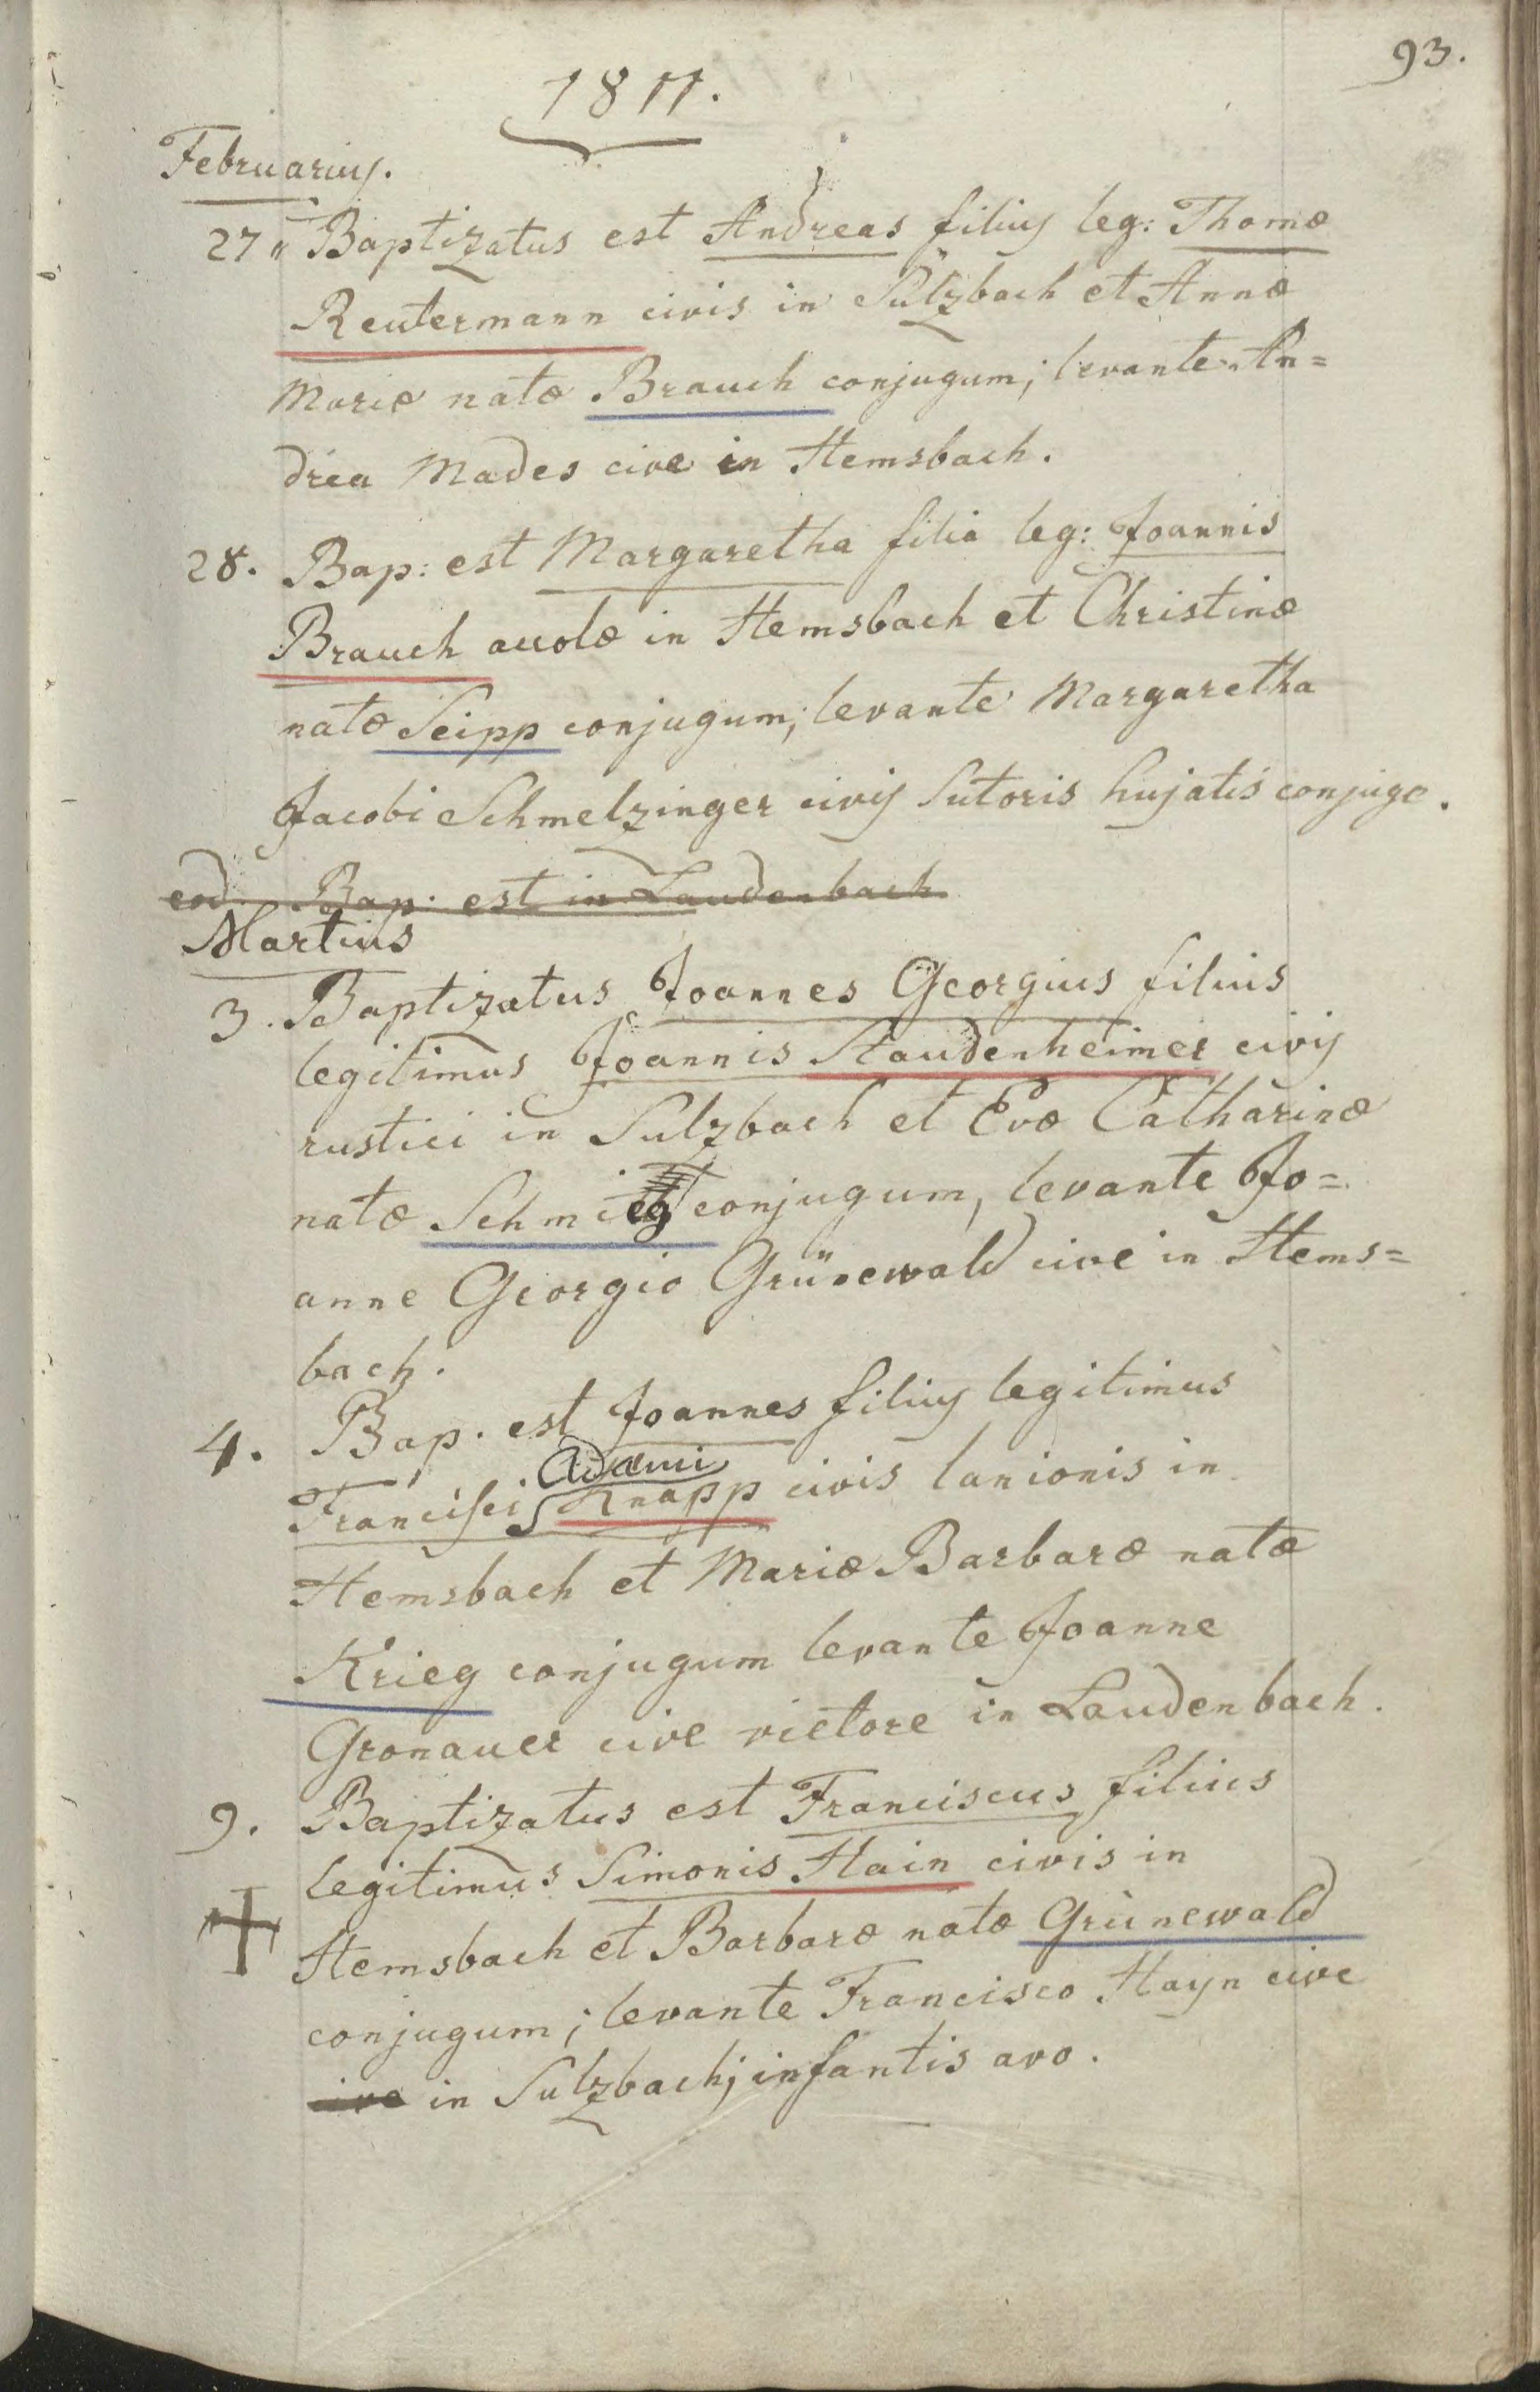 93.
1811.
Februarius.
27 " Baptizatus est Andreas filius leg: Thomæ
Reutermann civis in Sulzbach et Annæ
Mariæ natæ Brauch conjugum; levante An=
drea Mades cive in Hemsbach.
28. Bap: est Margaretha filia leg: Joannis
Brauch accolæ in Hemsbach et Christinæ
natæ Seipp conjugum; levante Margaretha
Jacobi Schmelzinger civis Sutoris hujatis conjuge.
eod. Bap: est in Laudenbach
Martius
3. Baptizatus Joannes Georgius filius
legitimus Joannis Staudenheimer civis
rustici in Sulzbach et Evæ Catharinæ
natæ conjugum, levante Jo=
anne Georgio Grünewald cive in Hems=
bach.
4. Bap. est Joannes filius legitimus
Adami
Francisci Knapp civis lanionis in
Hemsbach et Mariæ Barbaræ natæ
Krieg conjugum levante Joanne
Gronauer cive vietore in Laudenbach.
9. Baptizatus est Franciscus filius
legitimus Simonis Hain civis in
Hemsbach et Barbaræ natæ Grünewald
conjugum; levante Francisco Hayn cive
in Sulzbach; infantis avo.